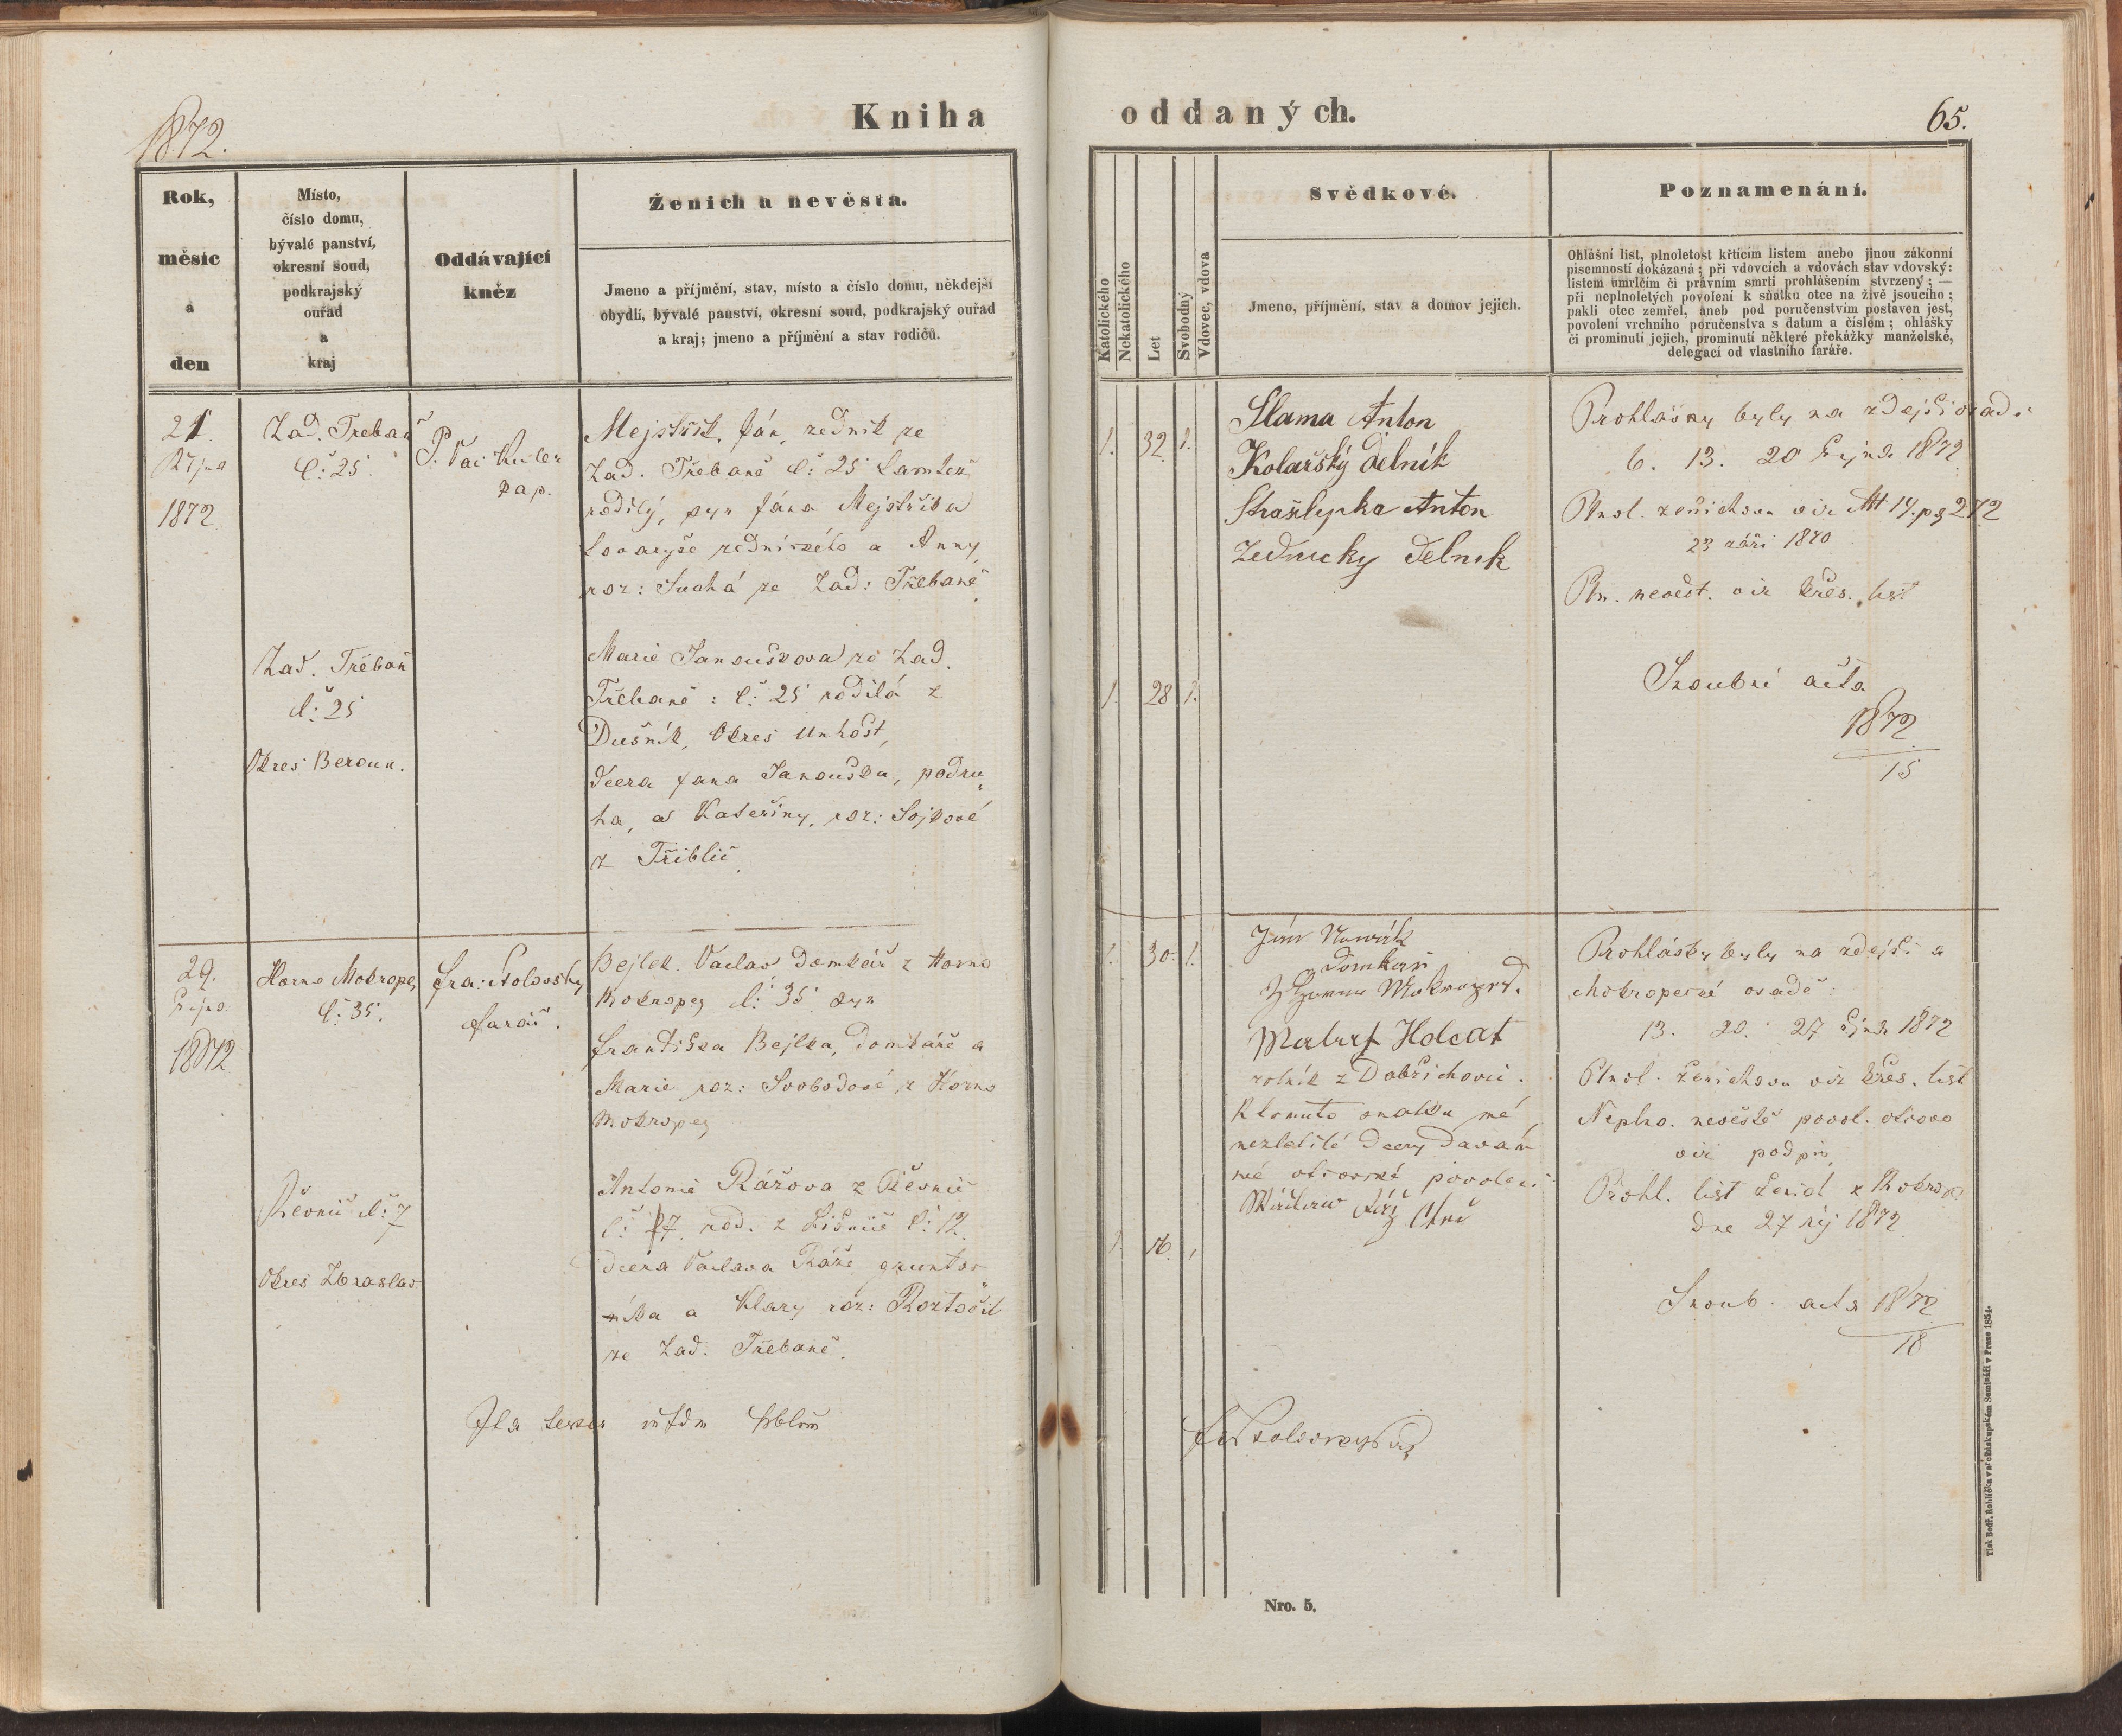 1872.
Kniha
oddaných.
65.
Rok,
měsíc
a
den
Místo,
číslo domu,
bývalé panství,
okresní soud,
podkrajský
ouřad
a
kraj
Oddávající
kněz
Ženich a nevěsta.
Jmeno a příjmění, stav, místo a číslo domu, někdejší
obydlí, bývalé panství, okresní soud, podkrajský ouřad
a kraj; jmeno a příjmění a stav rodičů.
Katolického
Nekatolického
Let
Svobodný
Vdovec, vdova
Svědkové.
Jmeno, příjmění, stav a domov jejich.
Poznamenání.
Ohlášní list, plnoletost křtícím listem anebo jinou zákonní
písemností dokázaná; při vdovcích a vdovách stav vdovský:
listem úmrlčím či právním smrti prohlášením stvrzený; —
při neplnoletých povolení k sňatku otce na živě jsoucího;
pakli otec zemřel, aneb pod poručenstvím postaven jest,
povolení vrchního poručenstva s datum a číslem; ohlášky
či prominutí jejich, prominutí některé překážky manželské,
delegací od vlastního faráře.
21.
Října
1872.
Zad. Třebaň
č: 25.
P. Vác
kap.
Mejstřík Ján, zedník ze
Zad. Třebaně č: 25 tamtéž
rodilý, syn Jána Mejstříka
tovaryše zednického a Anny
roz: Suchá ze Zad: Třebaně.
Zad. Třebaň
č: 25
Okres Beroun.
Marie Janoušková ze Zad.
Třebaně: č: 25 rodilá z
Dušník, Okres Unhošt,
dcera Jana Janouška, podru
ha, a Kateřiny, roz: Sojkové
z Třiblic.
1. 32 1.
1. 28 1.
Slama Anton
Kolařský dělník
Anton
Zednicky Dělnik
Prohlášky byly na zdejší osad.
6. 13. 20 října 1872
Plnol. ženichova viz 14. pg 272
23 září 1840
Pln. nevěst. viz křes. list
Snoubní acta
1872
15
29.
Října
1872
Horno Mokropes
č: 35.
Fra:
farář.
Bejlek Václav Domkář z Horno
Mokropes č: 35 syn
Františka Bejlka, domkáře a
Marie roz: Svobodové z Horno
Mokropes
Řevnic č: 7
Okres Zbraslav
Antonie Rážova z Řevnic
č: 7. rod. z Líšnice č: 12.
dcera Václava Ráže gruntov
níka a Klary roz: Roztočil
ze Zad. Třebaně.
1. 30. 1.
1. 16. 1
Ján Nowák
Domkař
Z Horno Mokropes.
Holcat
rolník z Dobřichovic.
K tomuto sňatku mé
nezletilé dcery davám
mé otcovské povolení
Prohlášky byly na zdejší a
Mokropeské osadě:
13. 20. 27 října 1872
Plnol. ženichova viz křes. list
Neplno. nevěstě povol. otcovo
viz podpis,
Prohl. list ženich z Mokrop
dne 27 říj 1872.
Snoub. acta 1872
18
Nro. 5.
Tisk Bedř. Rohlíčka v arcibiskupském Semináři v Praze 1854.